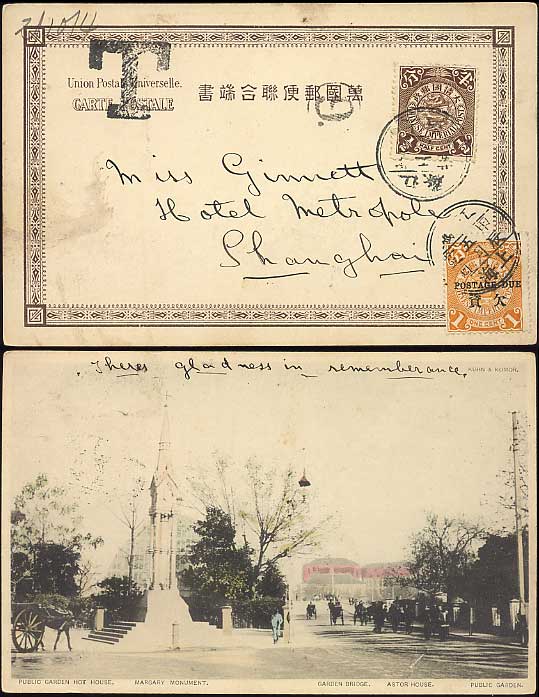 Union Postale Universelle.
CARTE POSTALE
萬國郵便聯合端書
T
HALF CENT
Miss Ginnett
Hotel Metropole
Shanghai
POSTAGE DUE
欠資
1 ONE CENT 1
Theres gladness in rememberance,
KUHN & KOMOR.
PUBLIC GARDEN HOT HOUSE. MARGARY MONUMENT. GARDEN BRIDGE. ASTOR HOUSE. PUBLIC GARDEN.